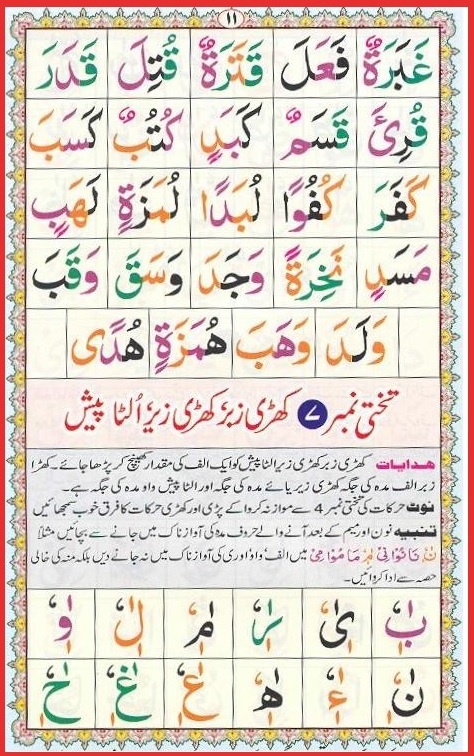 ١١
غَبَرَةٌ فَعَلَ قَتَرَةٌ قُتِلَ قَدَرَ
قُرِئَ قَسَمٌ كَبَدٍ كُتُبٌ كَسَبَ
كَفَرَ كُفُوًا لُبَدًا لُمَزَةٍ لَهَبٍ
مَسَدٍ نَخِرَةً وَجَدَ وَسَقَ وَقَبَ
وَلَدَ وَهَبَ هُمَزَةٍ هُدًى
تختی نمبر ۷ کھڑی زبر کھڑی زیر اُلٹا پیش
ھدایات کھڑی زبر کھڑی زیر الٹا پیش کو ایک الف کی مقدار کھینچ کر پڑھا جائے۔ کھڑا
زبر الف مدہ کی جگہ کھڑی زیر یائے مدہ کی جگہ اور الٹا پیش واو مدہ کی جگہ ہے۔
نوٹ حرکات کی تختی نمبر 4 سے موازنہ کروا کے پڑی اور کھڑی حرکات کا فرق خوب سمجھائیں
تنبیہ نون اور میم کے بعد آنے والے حروف مدہ کی آواز ناک میں جانے سے بچائیں مثلاً
نُوْ نَا مَا مُوْا مِىْ میں الف واؤ اور ی کی آواز ناک میں نہ جانے دیں بلکہ منہ کی خالی
حصہ سے ادا کروائیں۔
بٰ بٖ بٗ یٰ یٖ یٗ رٰ رٖ رٗ مٰ مٖ مٗ لٰ لٖ لٗ وٰ وٖ وٗ
نٰ نٖ نٗ ءٰ ءٖ ءٗ ھٰ ھٖ ھٗ عٰ عٖ عٗ غٰ غٖ غٗ حٰ حٖ حٗ